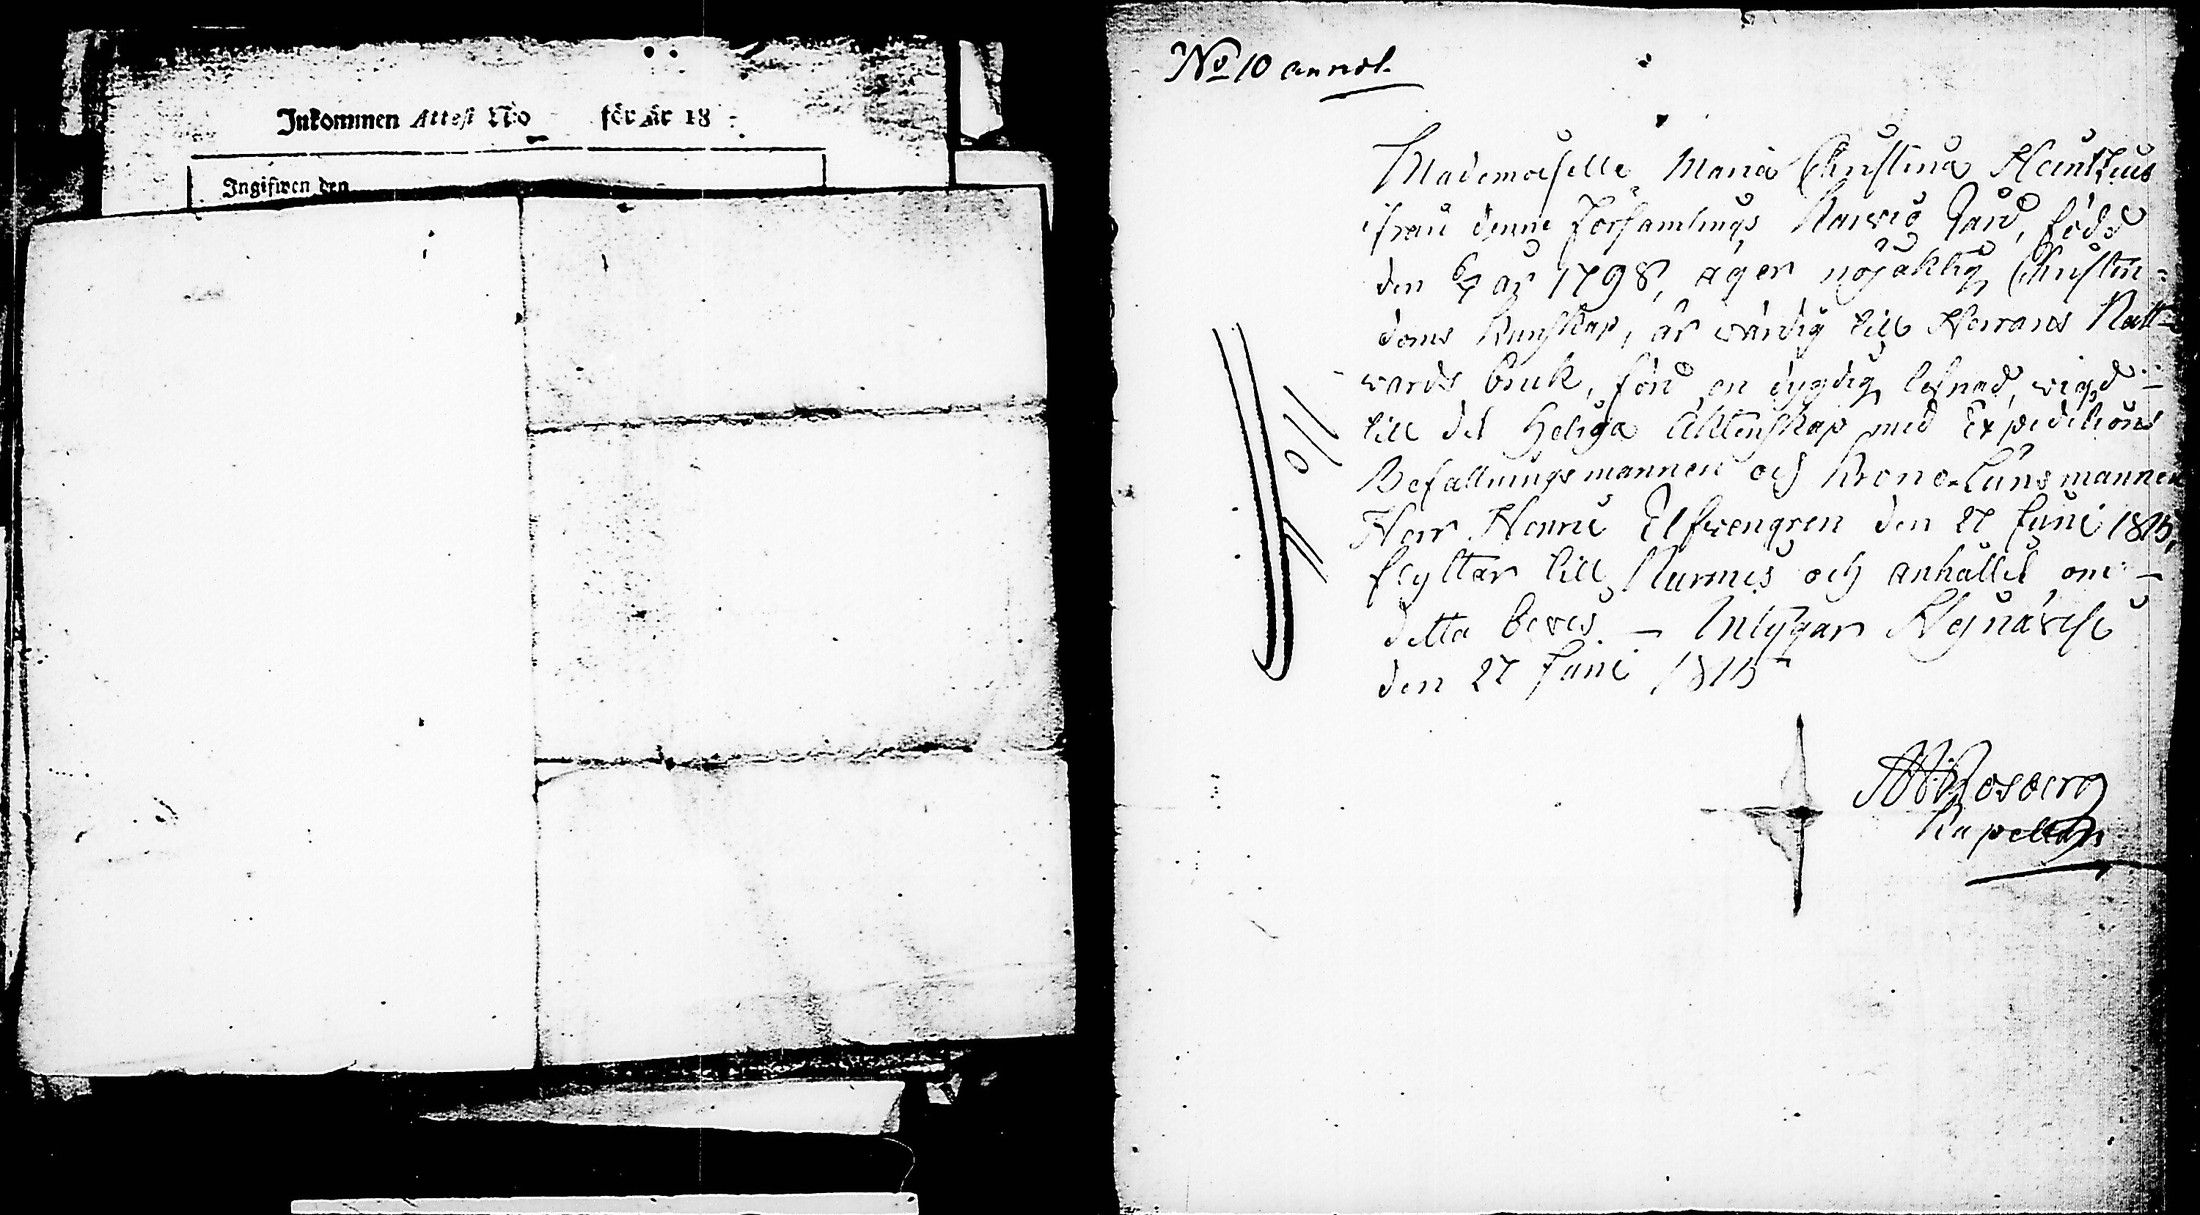 Inkommen Attest No för år 18
Ingifwen den
No 10 annot.
Mademoiselle Maria Christina Heintzius
ifrån denne Församlings Karvio Gård, född
den 6/4 år 1798, äger nöjaktig Christen-
doms Kunskap, är värdig till Herrans Natt-
vards bruk, förd en dygdig lefnad, vigd
till det Heliga Äktenskap med Expeditions
Befallningsmannen och Krono-Länsmannen
Herr Henric Elfvengren den 27 Juni 1815,
flyttar till Nurmis och anhållit om
detta bevis. — Intygar
den 27 Juni 1815
Rosberg
Kapellan